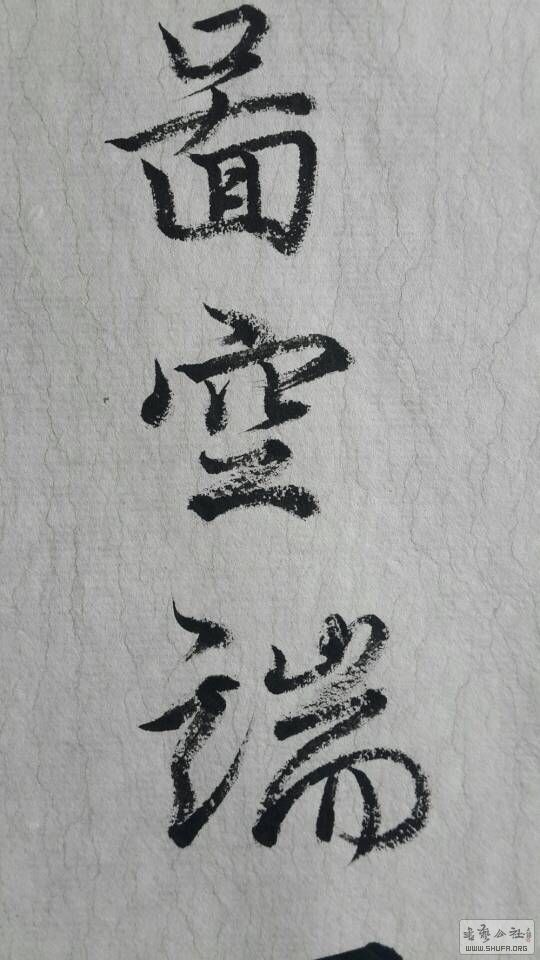 啚
空
端
书艺公社
WWW.SHUFA.ORG